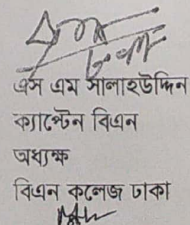 এস এম সালাহউদ্দিন
ক্যাপ্টেন বিএন
অধ্যক্ষ
বিএন কলেজ ঢাকা